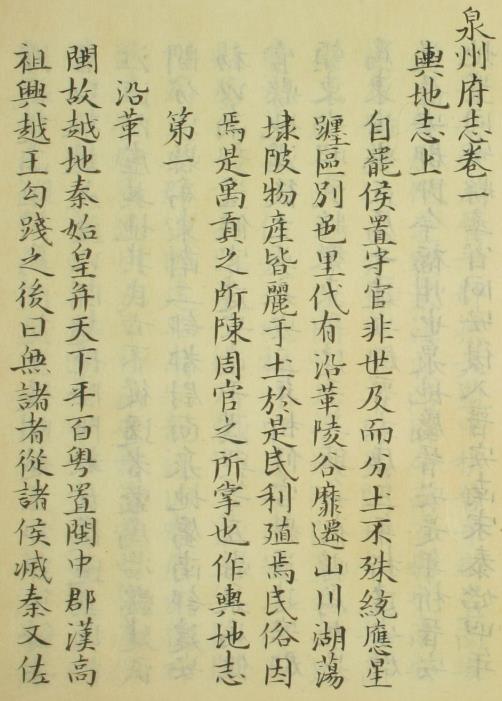 泉州府志卷一
輿地志上
自罷侯置守官非世及而分土不殊統應星
躔區別邑里代有沿革陵谷靡遷山川湖蕩
埭陂物產皆麗于土於是民利殖焉民俗因
焉是禹貢之所陳周官之所掌也作輿地志
第一
沿革
閩故越地秦始皇并天下平百粤置閩中郡漢高
祖興越王勾踐之後曰無諸者從諸侯滅秦又佐